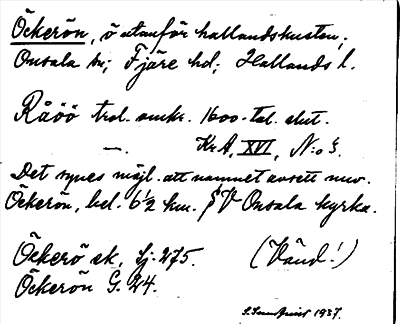 Öckerön, ö utanför hallandskusten,
Onsala sn, Fjäre hd, Hallands l.
Råöö trol. omkr. 1600-tal. slut.
—. KrA, XVI, N:o 3.
Det synes möjl. att namnet avsett nuv.
Öckerön, bel. 6½ km. SV Onsala kyrka.
Öckerö sk, Sj. 275. (Vänd!)
Öckerön G. 24.
1937.